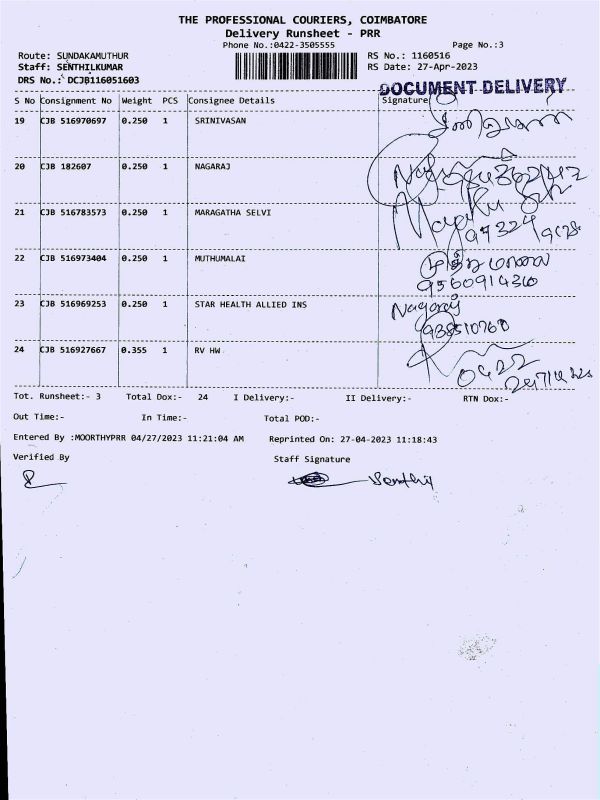 THE PROFESSIONAL COURIERS, COIMBATORE
Delivery Runsheet - PRR
Phone No.:0422-3505555 Page No.:3
Route: SUNDAKAMUTHUR RS No.: 1160516
Staff: SENTHILKUMAR RS Date: 27-Apr-2023
DRS No.: DCJB116051603
DOCUMENT DELIVERY
S No Consignment No Weight PCS Consignee Details Signature
19 CJB 516970697 0.250 1 SRINIVASAN
20 CJB 182607 0.250 1 NAGARAJ
21 CJB 516783573 0.250 1 MARAGATHA SELVI
22 CJB 516973404 0.250 1 MUTHUMALAI முத்து மாலை
9560914360
23 CJB 516969253 0.250 1 STAR HEALTH ALLIED INS Nagaraj
24 CJB 516927667 0.355 1 RV HW
0422
Tot. Runsheet:- 3 Total Dox:- 24 I Delivery:- II Delivery:- RTN Dox:-
Out Time:- In Time:- Total POD:-
Entered By :MOORTHYPRR 04/27/2023 11:21:04 AM Reprinted On: 27-04-2023 11:18:43
Verified By Staff Signature
Senthil